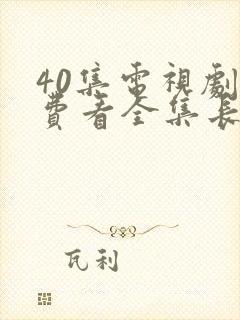 40集電視劇
費看全集長
瓦利